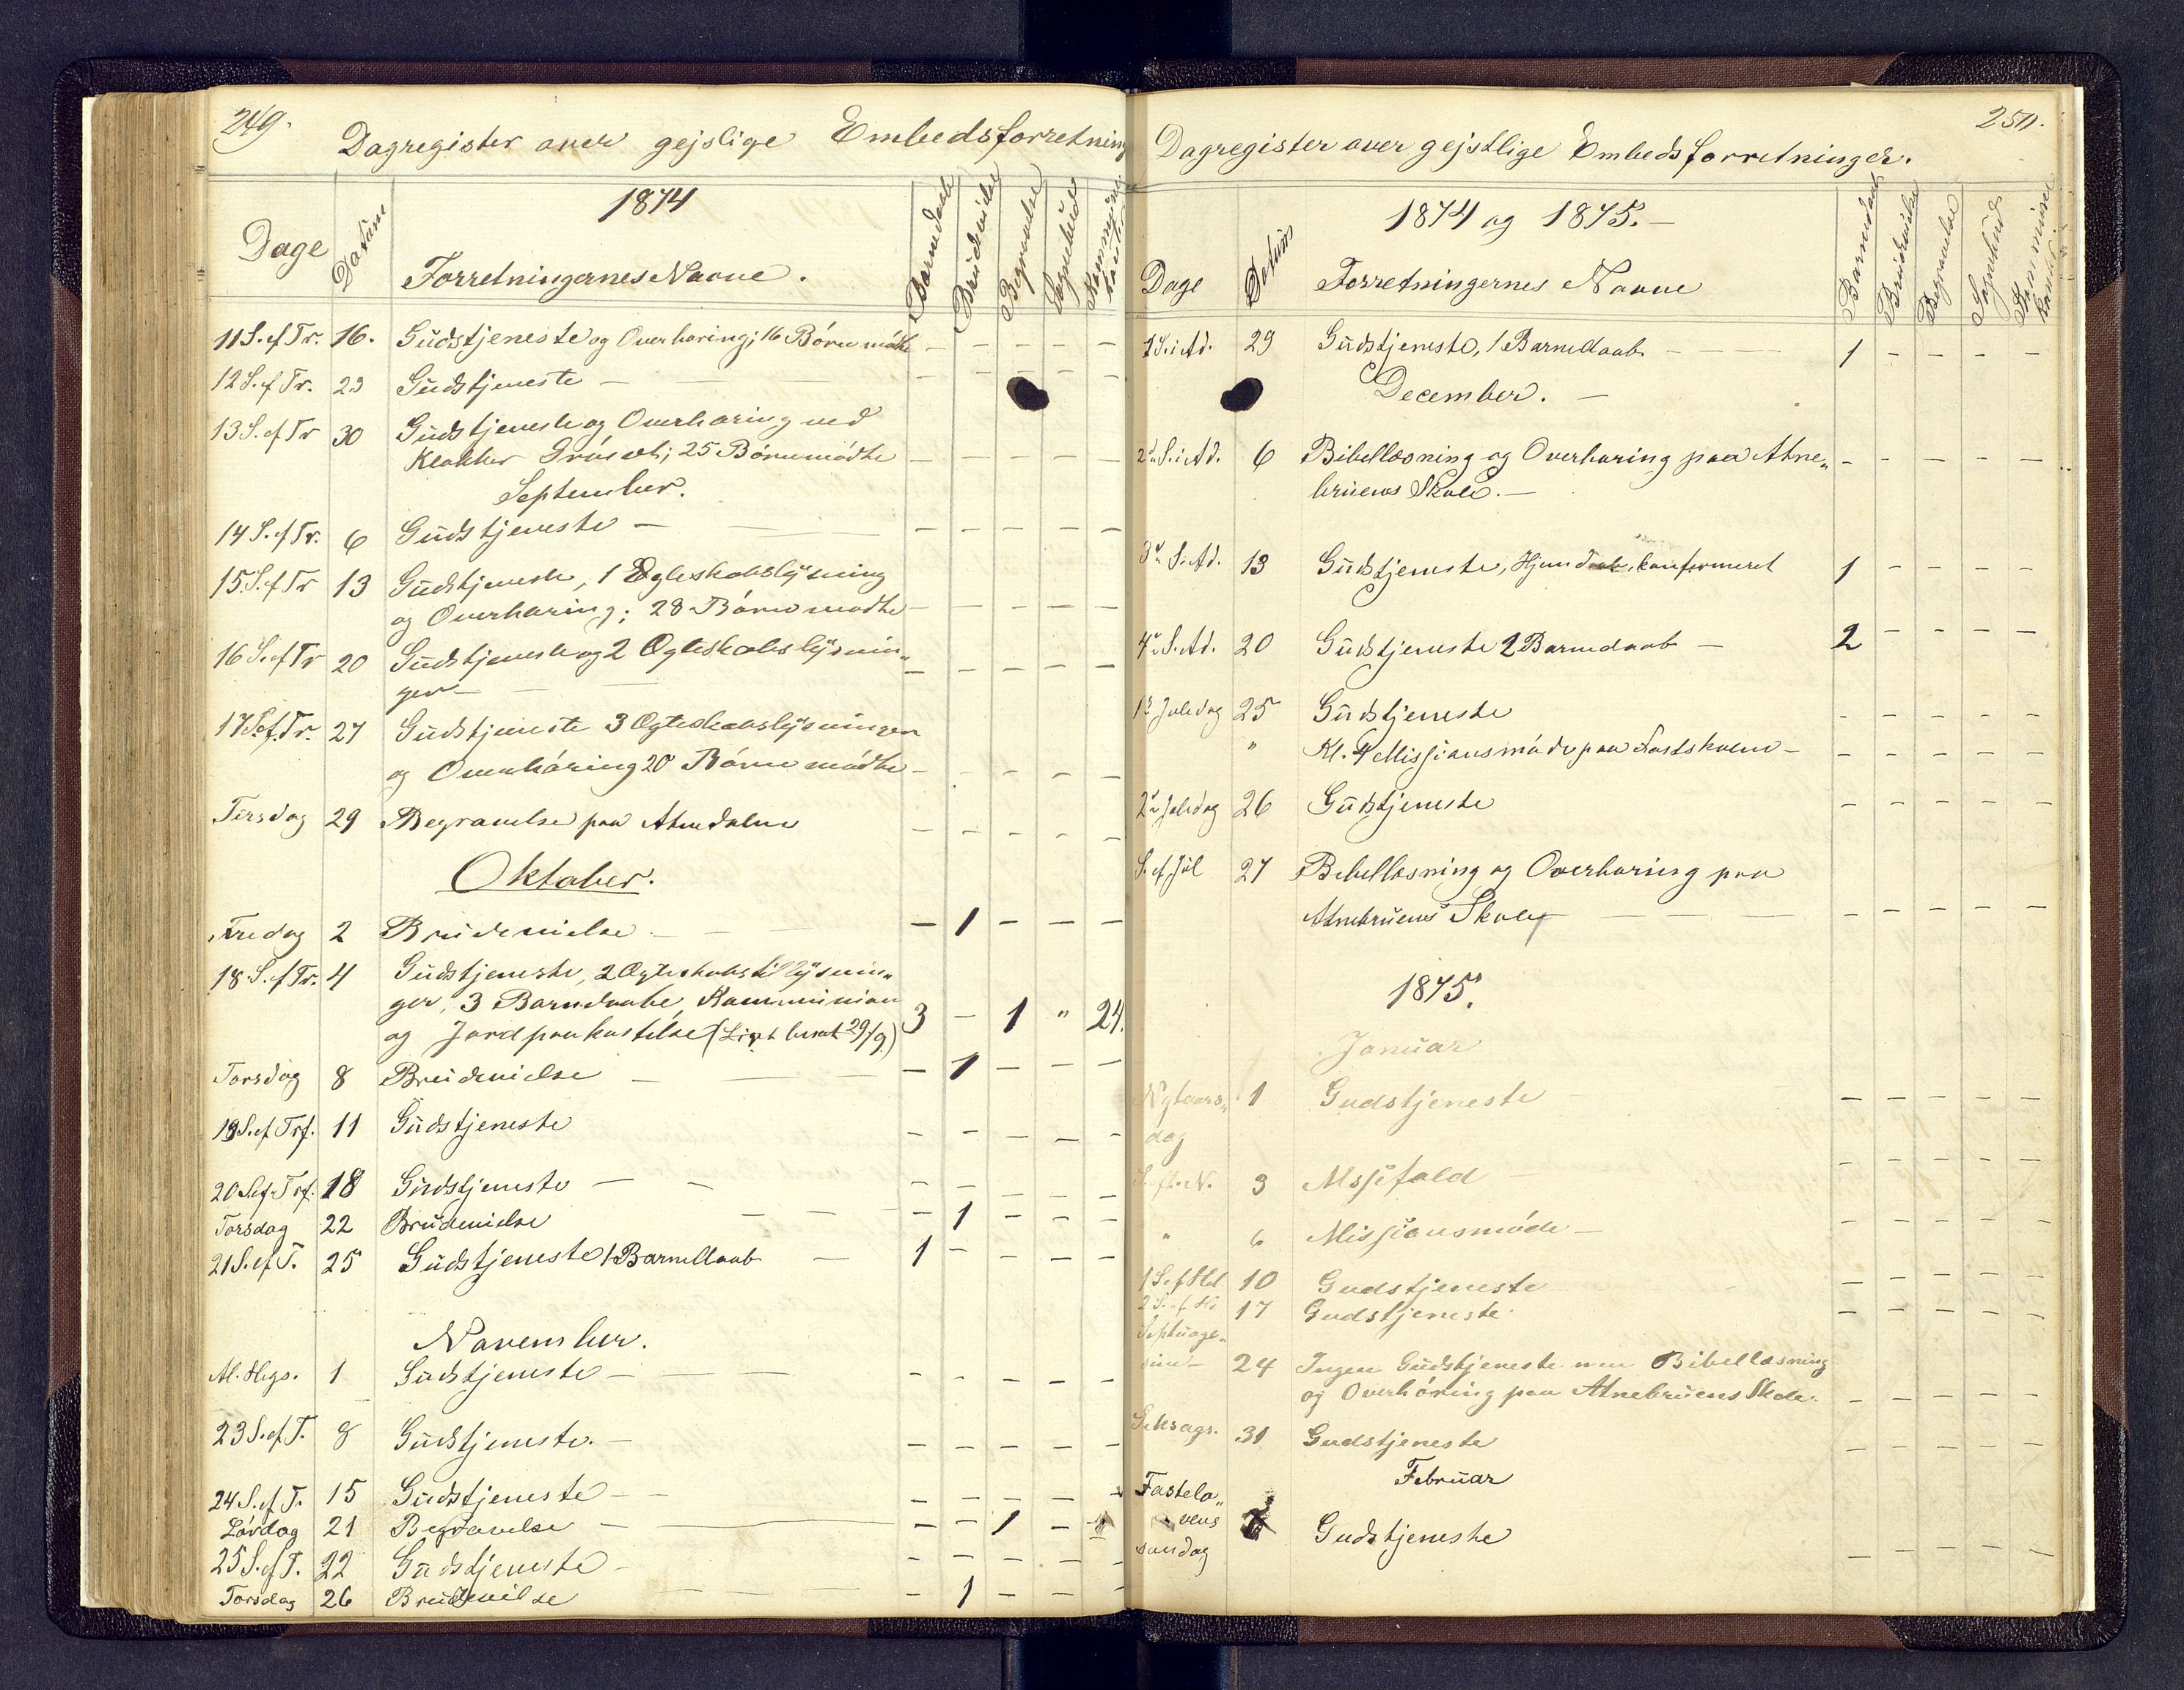 249.
Dagregister over gejslige Embedsforretning
1874
Dage
Datum
Forretningernes Navne.
Barnedaab
Brudevielse
Begravelse
Sognebud
11 S. ef Tr. 16. Gudstjeneste og Overhøring; 16 Børn mødte – – – – –
12 S. ef Tr. 23 Gudstjeneste – – – – – –
13 S. ef Tr 30 Gudstjeneste og Overhøring ved
Klokker 25 Børn mødte – – – – –
September.
14 S. ef Tr. 6 Gudstjeneste – – – – – –
15 S. ef Tr 13 Gudstjeneste, 1 Ægteskabslysning
og Overhøring; 28 Børn mødte – – – – –
16 S. ef Tr 20 Gudstjeneste og 2 Ægteskabslysnin„
ger – – – – – –
17 S. ef. Tr. 27 Gudstjeneste 3 Ægteskabslysninger
og Overhøring 20 Børn mødte – – – – –
Tirsdag 29 Begravelse paa Atnedalen – – – – –
Oktober.
Fredag 2 Brudevielse – – 1 – – –
18 S. ef Tr. 4 Gudstjeneste, 2 Ægteskabs lysnin„
ger, 3 Barnedaabe, Kommunion
og Jordpaakastelse (Liget besat 29/9) 3 – 1 " 24.
Torsdag 8 Brudevielse – – 1 – – –
19 S. ef Trf. 11 Gudstjeneste – – – – –
20 S. ef Trf. 18 Gudstjeneste – – – – – –
Torsdag 22 Brudevielse – – 1 – – –
21 S. ef T. 25 Gudstjeneste 1 Barnedaab – 1 – – – –
November.
Al. Hegs. 1 Gudstjeneste – – – – – –
23 S. ef T. 8 Gudstjeneste. – – – – – –
24 S. ef T. 15 Gudstjeneste – – – – – –
Lørdag 21 Begravelse – – – 1 –
25 S. ef T. 22 Gudstjeneste – – – – – –
Torsdag 26 Brudevielse – – 1 – – –
250.
Dagregister over gejstlige Embedsforretninger.
1874 og 1875. –
Dage
Datum
Forretningernes Navne
Barnedaab
Brudevielse
Begravelse
Sognebud
1 S. i Ad. 29 Gudstjeneste, 1 Barnedaab – 1 – – – –
December. –
2n S. i Ad. 6 Bibellæsning og Overhøring paa Atne„ – – – – –
bruens Skole. –
3n S. Ad. 13 Gudstjeneste, Hjemdaab konfirmeret 1 – – – –
4n S. Ad. 20 Gudstjeneste 2 Barnedaab – 2 – – – –
1n Juledag 25 Gudstjeneste – – – – –
" Kl. 4 Missionsmøde paa Fastskolen – – – – – –
2n Juledag 26 Gudstjeneste – – – – –
S. ef. Jul 27 Bibellæsning og Overhøring paa
Atnebruens Skole – – – – – –
1875.
Januar
Nytaars„ 1 Gudstjeneste – – – – –
dag
S. ef. N. 3 Messefald – – – – – –
" 6 Missionsmøde – – – – – –
1 S. ef Hel 10 Gudstjeneste – – – – –
2 S. ef He 17 Gudstjeneste
Septuage„
sima – 24 Ingen Gudstjeneste men Bibellæsning
og Overhøring paa Atnebruens Skole. – – – – –
Seksags. 31 Gudstjeneste – – – – –
Februar
Fastela„
vens 7 Gudstjeneste
søndag – – – – –